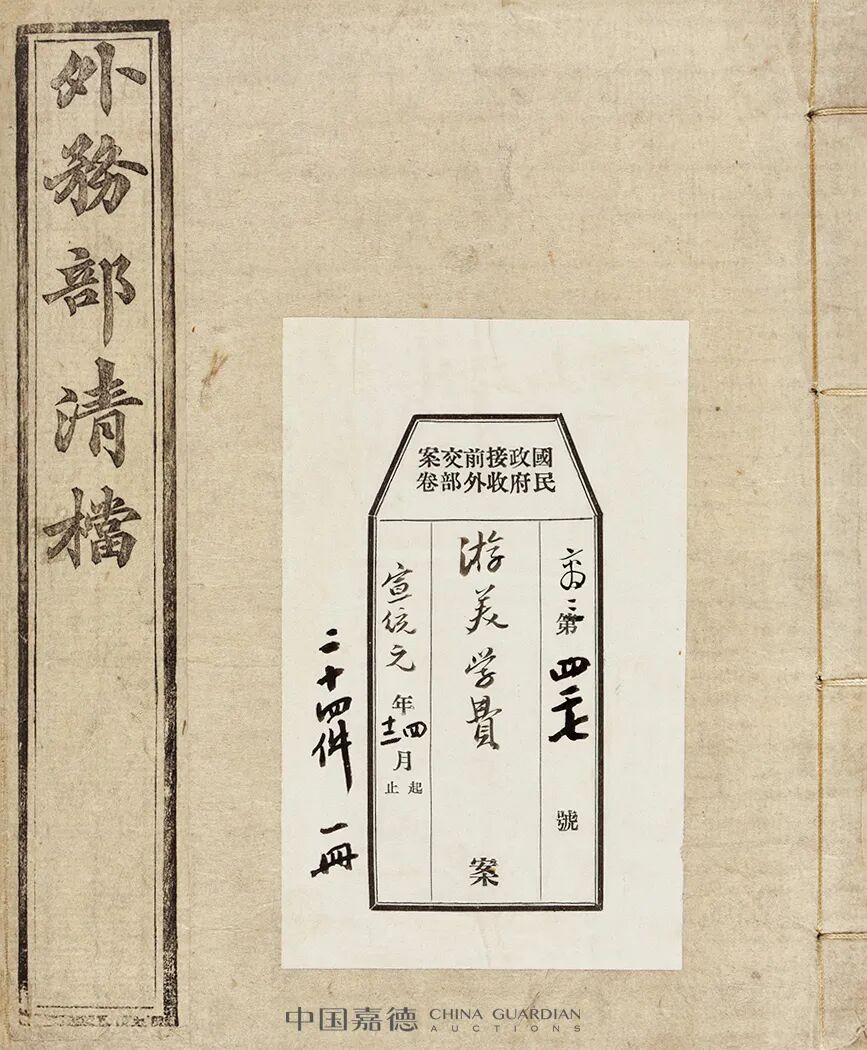 外務部清檔
國民政府接收前外交部案卷
第 號
游美学費 案
宣統元年四十二月起止
二十四件 一冊
中国嘉德 CHINA GUARDIAN
AUCTIONS